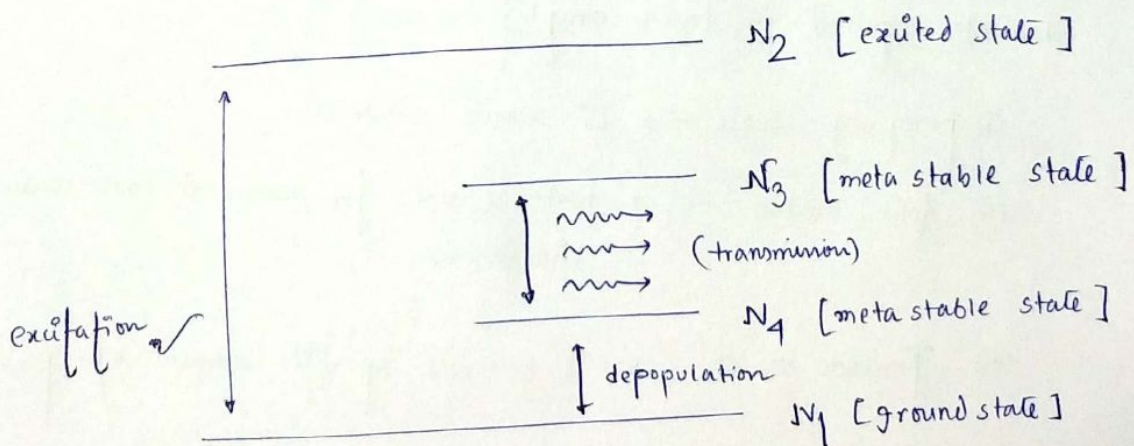 N2 [exited state]
N3 [meta stable state]
(transmission)
N4 [meta stable state]
excitation
depopulation
N1 [ground state]